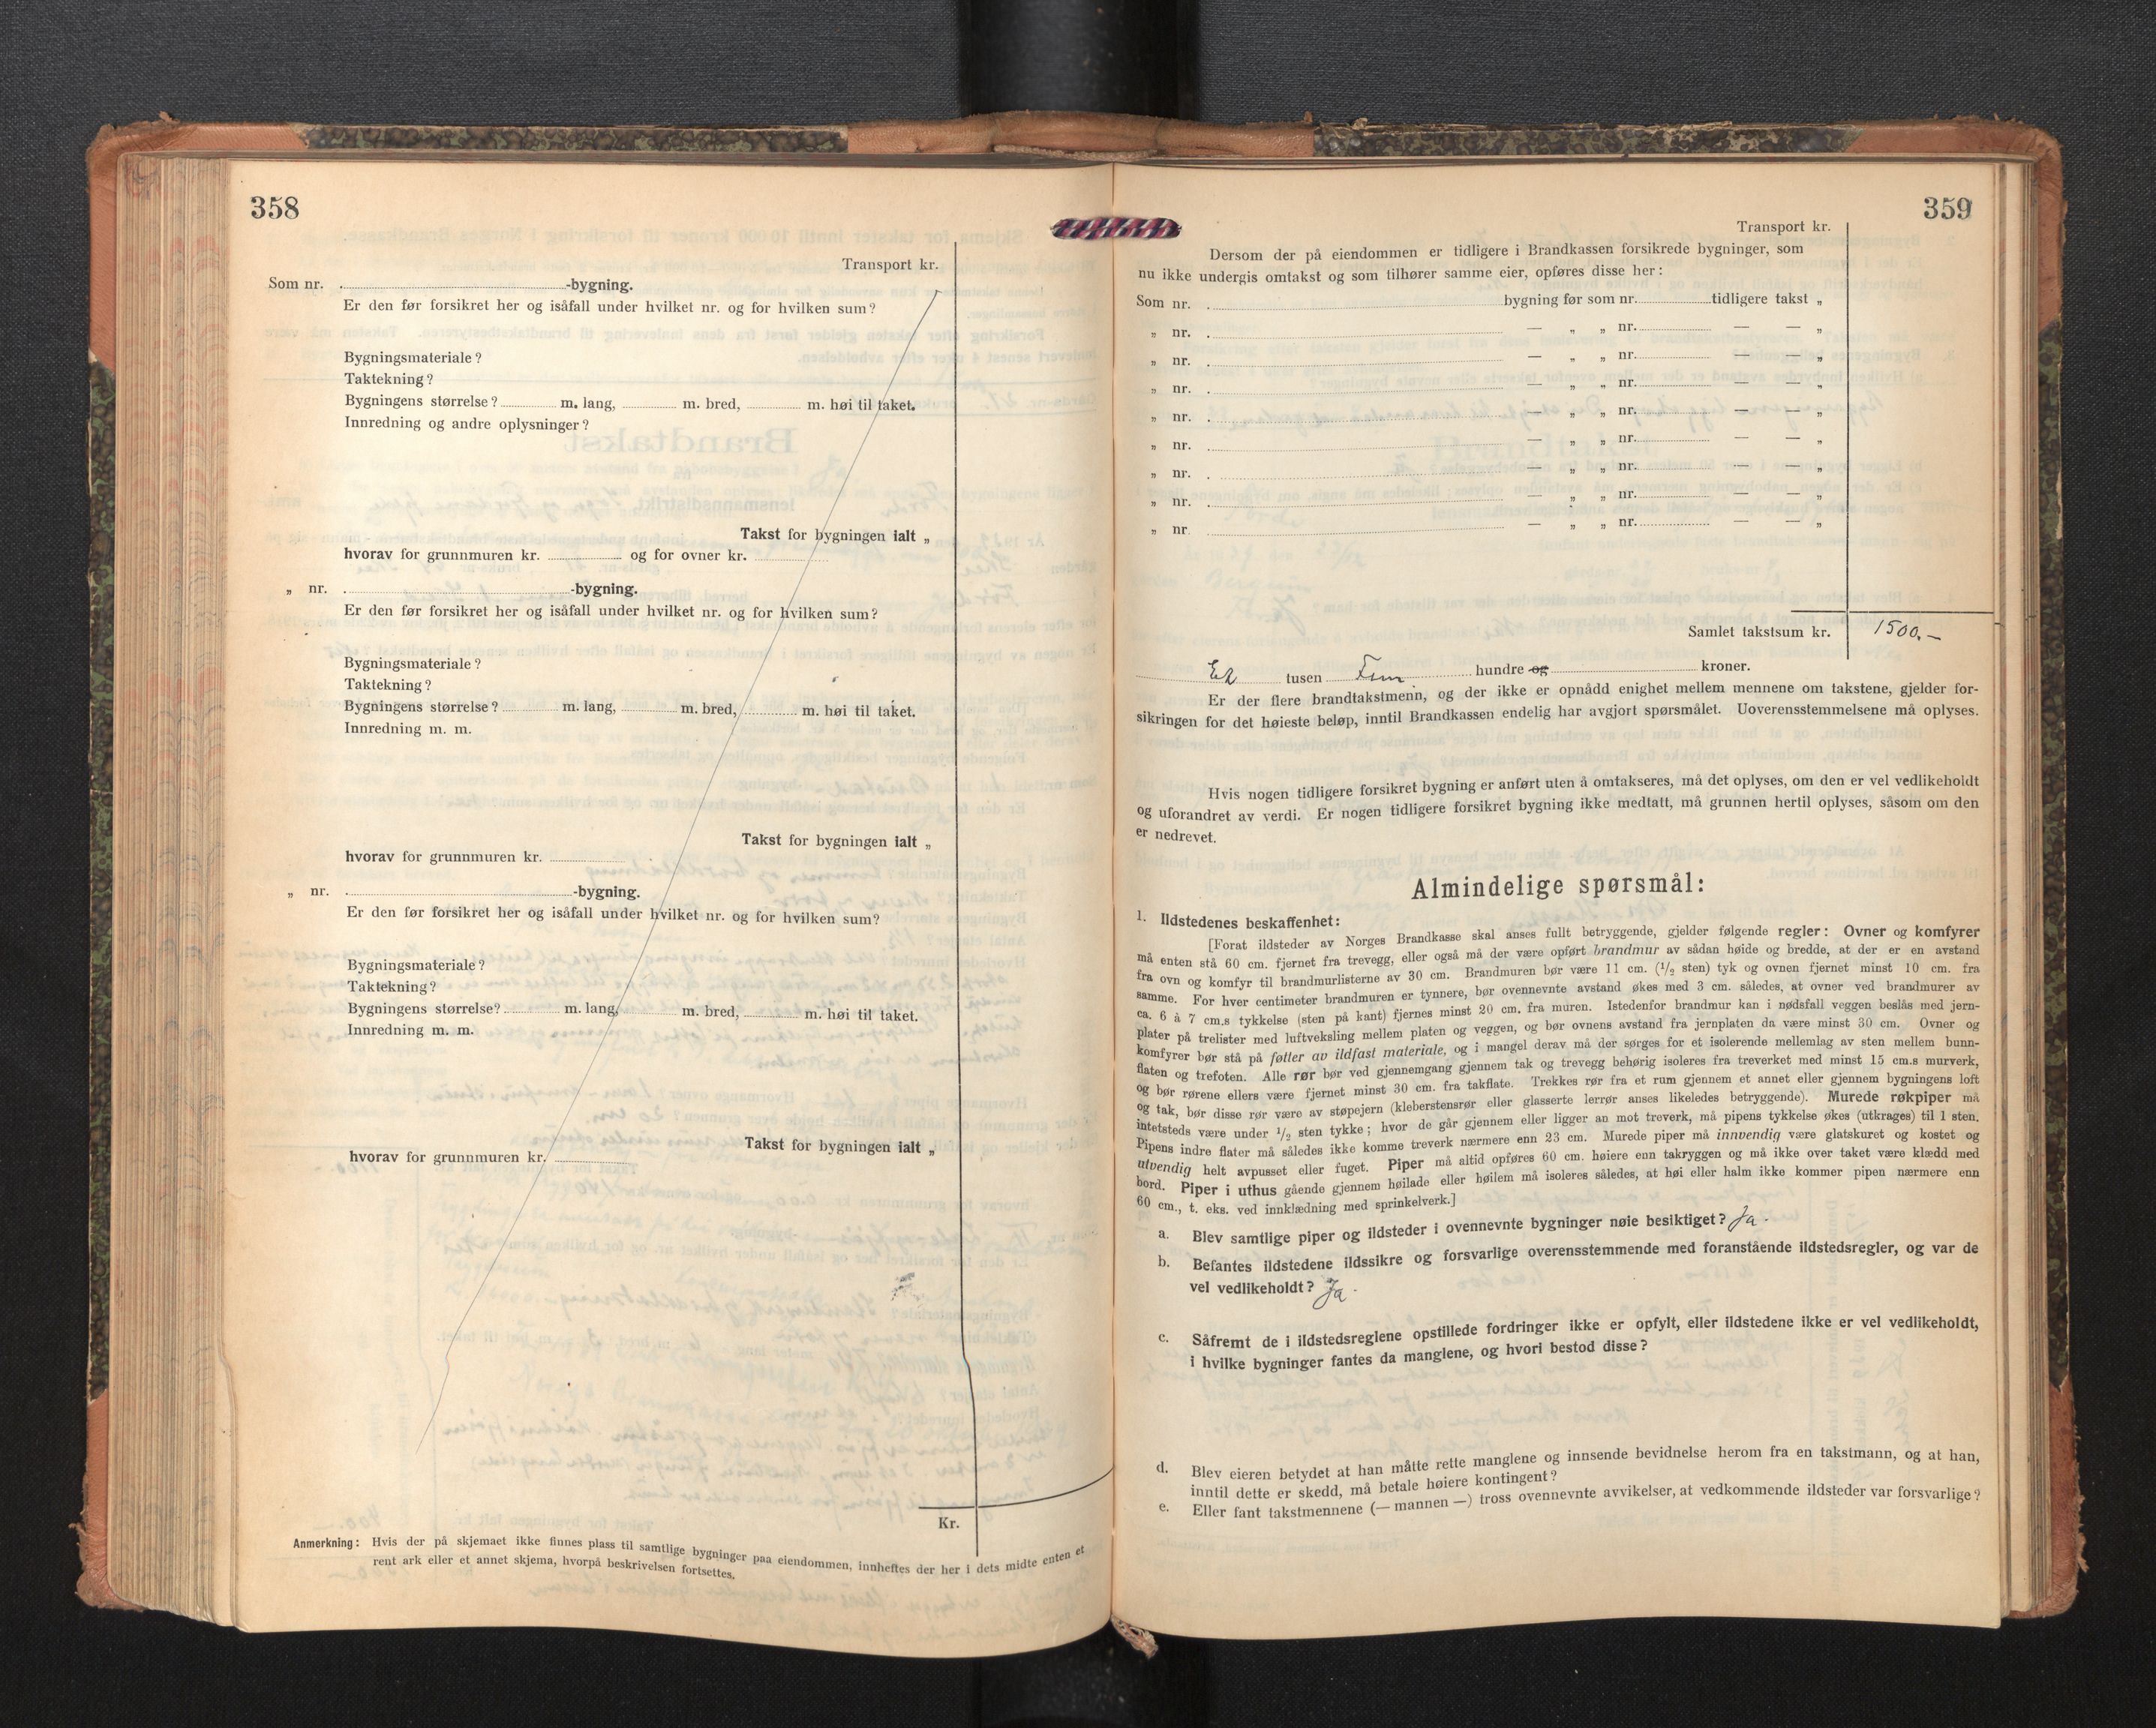 358
Transport kr.
Som nr. -bygning.
Er den før forsikret her og isåfall under hvilket nr. og for hvilken sum?
Bygningsmateriale?
Taktekning?
Bygningens størrelse? m. lang, m. bred, m. høi til taket.
Innredning og andre oplysninger?
Takst for bygningen ialt „
hvorav for grunnmuren kr. og for ovner kr.
„ nr. -bygning.
Er den før forsikret her og isåfall under hvilket nr. og for hvilken sum?
Bygningsmateriale?
Taktekning?
Bygningens størrelse? m. lang, m. bred, m. høi til taket.
Innredning m. m.
Takst for bygningen ialt „
hvorav for grunnmuren kr.
„ nr. -bygning.
Er den før forsikret her og isåfall under hvilket nr. og for hvilken sum?
Bygningsmateriale?
Taktekning?
Bygningens størrelse? m. lang, m. bred, m. høi til taket.
Innredning m. m.
Takst for bygningen ialt „
hvorav for grunnmuren kr.
Kr.
Anmerkning: Hvis der på skjemaet ikke finnes plass til samtlige bygninger paa eiendommen, innheftes der her i dets midte enten et
rent ark eller et annet skjema, hvorpå beskrivelsen fortsettes.
359
Transport kr.
Dersom der på eiendommen er tidligere i Brandkassen forsikrede bygninger, som
nu ikke undergis omtakst og som tilhører samme eier, opføres disse her:
Som nr. bygning før som nr. tidligere takst „
„ nr. — „ „ nr. — — „
„ nr. — „ „ nr. — — „
„ nr. — „ „ nr. — — „
„ nr. — „ „ nr. — — „
„ nr. — „ „ nr. — — „
„ nr. — „ „ nr. — — „
„ nr. — „ „ nr. — — „
„ nr. — „ „ nr. — — „
Samlet takstsum kr. 1500.–
Et tusen Fem hundre og kroner.
Er der flere brandtakstmenn, og der ikke er opnådd enighet mellem mennene om takstene, gjelder for-
sikringen for det høieste beløp, inntil Brandkassen endelig har avgjort spørsmålet. Uoverensstemmelsene må oplyses.
Hvis nogen tidligere forsikret bygning er anført uten å omtakseres, må det oplyses, om den er vel vedlikeholdt
og uforandret av verdi. Er nogen tidligere forsikret bygning ikke medtatt, må grunnen hertil oplyses, såsom om den
er nedrevet.
Almindelige spørsmål:
1. Ildstedenes beskaffenhet:
[Forat ildsteder av Norges Brandkasse skal anses fullt betryggende, gjelder følgende regler: Ovner og komfyrer
må enten stå 60 cm. fjernet fra trevegg, eller også må der være opført brandmur av sådan høide og bredde, at der er en avstand
fra ovn og komfyr til brandmurlisterne av 30 cm. Brandmuren bør være 11 cm. (1/2 sten) tyk og ovnen fjernet minst 10 cm. fra
samme. For hver centimeter brandmuren er tynnere, bør ovennevnte avstand økes med 3 cm. således, at ovner ved brandmurer av
ca. 6 à 7 cm.s tykkelse (sten på kant) fjernes minst 20 cm. fra muren. Istedenfor brandmur kan i nødsfall veggen beslås med jern-
plater på trelister med luftveksling mellem platen og veggen, og bør ovnens avstand fra jernplaten da være minst 30 cm. Ovner og
komfyrer bør stå på føtter av ildfast materiale, og i mangel derav må der sørges for et isolerende mellemlag av sten mellem bunn-
flaten og trefoten. Alle rør bør ved gjennemgang gjennem tak og trevegg behørig isoleres fra treverket med minst 15 cm.s murverk,
og bør rørene ellers være fjernet minst 30 cm. fra takflate. Trekkes rør fra et rum gjennem et annet eller gjennem bygningens loft
og tak, bør disse rør være av støpejern (kleberstensrør eller glasserte lerrør anses likeledes betryggende). Murede røkpiper må
intetsteds være under 1/2 sten tykke; hvor de går gjennem eller ligger an mot treverk, må pipens tykkelse økes (utkrages) til 1 sten.
Pipens indre flater må således ikke komme treverk nærmere enn 23 cm. Murede piper må innvendig være glatskuret og kostet og
utvendig helt avpusset eller fuget. Piper må altid opføres 60 cm. høiere enn takryggen og må ikke over taket være klædd med
bord. Piper i uthus gående gjennem høilade eller høilem må isoleres således, at høi eller halm ikke kommer pipen nærmere enn
60 cm., t. eks. ved innklædning med sprinkelverk.]
a. Blev samtlige piper og ildsteder i ovennevnte bygninger nøie besiktiget? Ja.
b. Befantes ildstedene ildssikre og forsvarlige overensstemmende med foranstående ildstedsregler, og var de
vel vedlikeholdt? Ja.
c. Såfremt de i ildstedsreglene opstillede fordringer ikke er opfylt, eller ildstedene ikke er vel vedlikeholdt,
i hvilke bygninger fantes da manglene, og hvori bestod disse?
d. Blev eieren betydet at han måtte rette manglene og innsende bevidnelse herom fra en takstmann, og at han,
inntil dette er skedd, må betale høiere kontingent?
e. Eller fant takstmennene (— mannen —) tross ovennevnte avvikelser, at vedkommende ildsteder var forsvarlige?